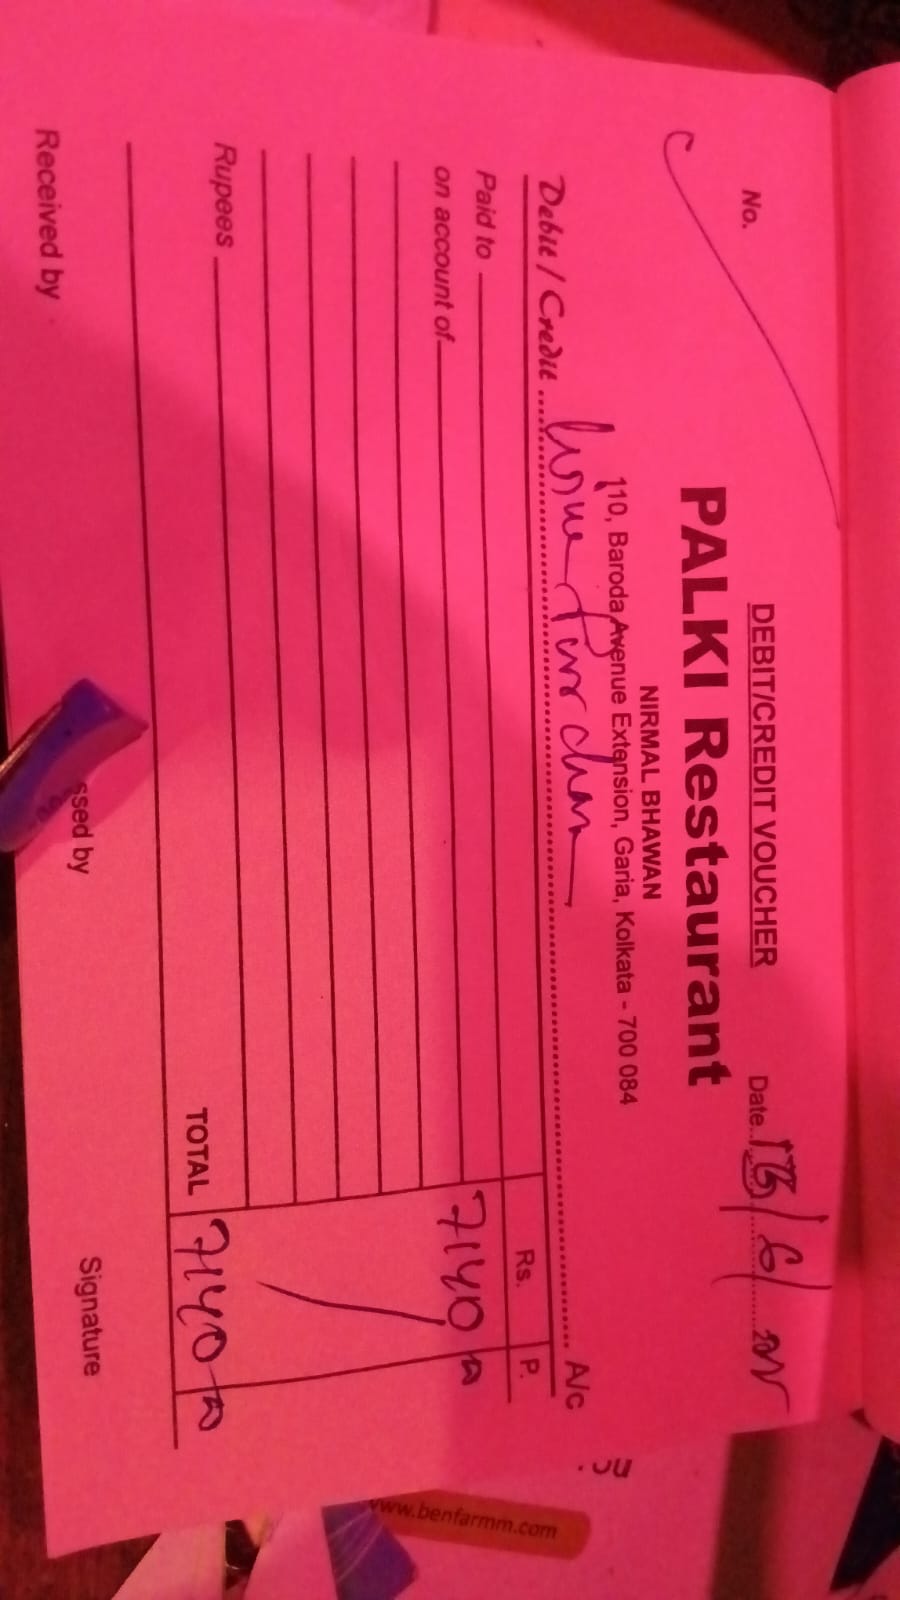 DEBIT/CREDIT VOUCHER
No.
Date
PALKI Restaurant
NIRMAL BHAWAN
110, Baroda Avenue Extension, Garia, Kolkata - 700 084
Debit / Credit A/c
Rs. P.
Paid to
on account of 7140
Rupees
TOTAL 7140
Received by
ssed by
Signature
www.benfarmm.com